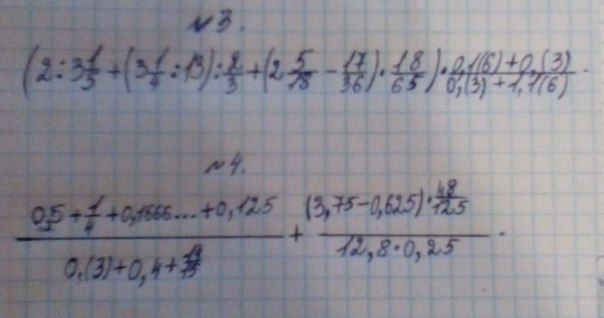 №3.
(2 : 3 1/5 + (3 1/4 : 13) : 2/3 + (2 5/18 − 17/36) · 18/65) · (0,1(6) + 0,(3))/(0,(3) + 1,1(6)) .
№4.
(0,5 + 1/4 + 0,1666... + 0,125)/(0,(3) + 0,4 + 14/15) + ((3,75 − 0,625) · 48/125)/(12,8 · 0,25) .